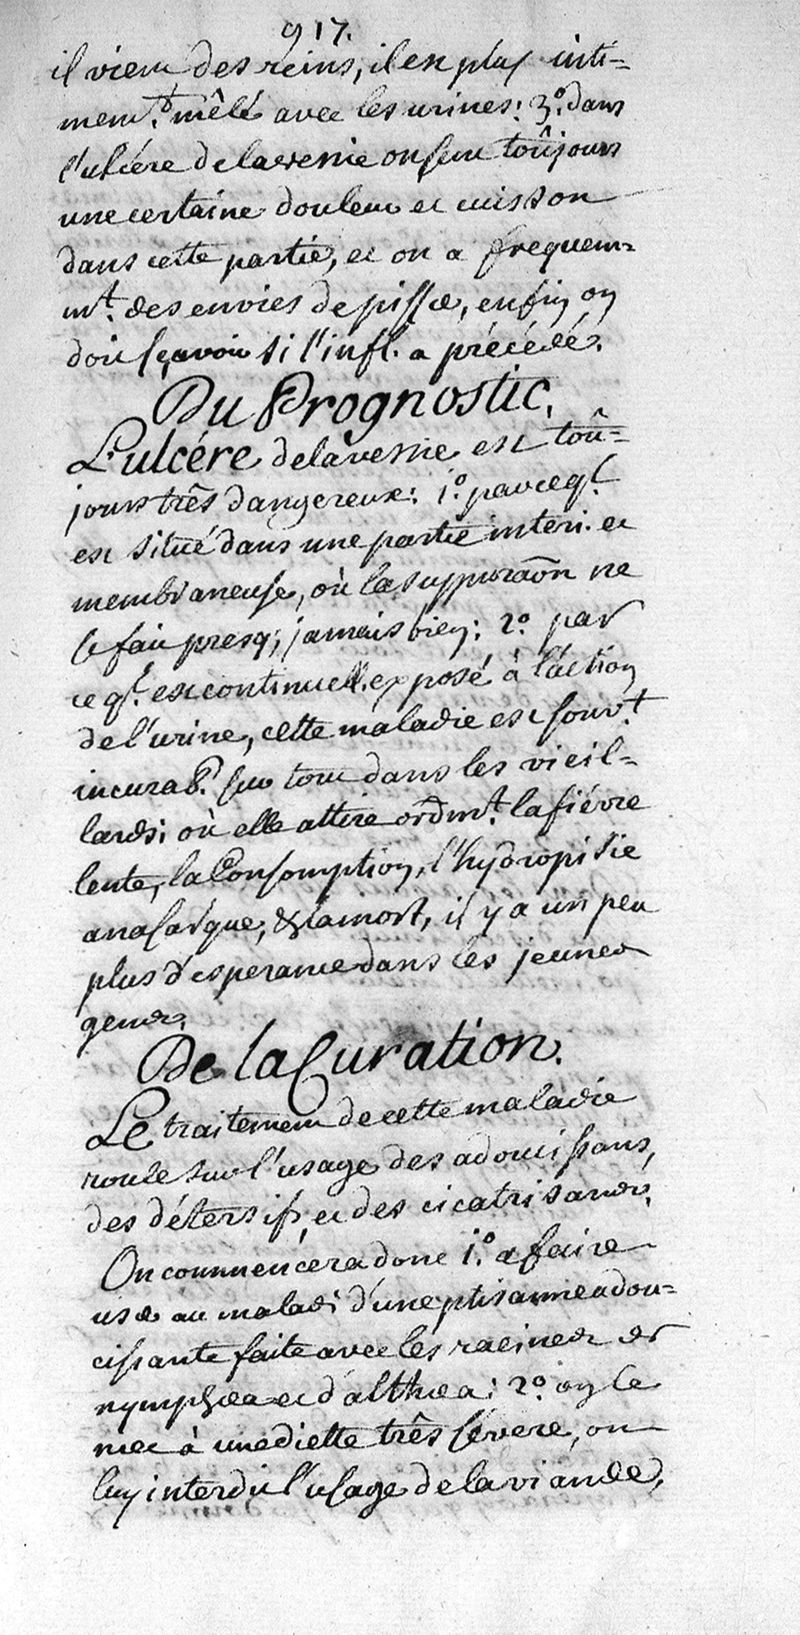 917.
il vient des reins, il est plus inti=
mem.t mêlé avec les urines: 3.° dans
l'ulcére de la vessie on sent toûjours
une certaine douleur et cuisson
dans cette partie, et on a frequem=
m.t des envies de pisser, enfin on
doit sçavoir si l'infl. a précédé.
Du Prognostic.
L'ulcére de la vessie est toû=
jours três dangereux: 1.° parceq.l
est situé dans une partie interi. et
membraneuse, où la suppuraõn ne
se fait presq; jamais bien; 2.° par
ce q.l est continuell. exposé à l'action
de l'urine, cette maladie est souv.t
incurab. sur tout dans les vieil=
lards; où elle attire ordm.t la fiévre
lente, la Consomption, l'hydropisie
anasarque, & la mort, il y a un peu
plus d'esperance dans les jeunes
gens.
De la Curation.
Le traitement de cette maladie
roule sur l'usage des adoucissans,
des détersifs, et des cicatrisans.
On commencera donc 1.° a faire
user au malade d'une ptisanne adou=
cissante faite avec les racines de
nymphœa et d'althœa; 2.° on le
met à une diette três sévere, on
luy interdit l'usage de la viande,